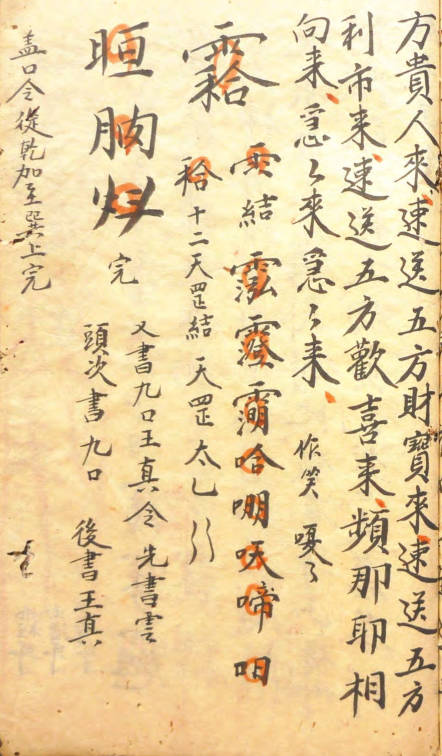 方貴人來速送五方財寶來速送五方
利市来速送五方歡喜来頻那耶相
向来急々来急々来 作笑 嗄々
雲結
哈嘣吠啼咱
十二天罡結 天罡 太乙
完 又書九口王真令 先書雲
頭次書九口 後書王真
盖口令從乾加至巽上完